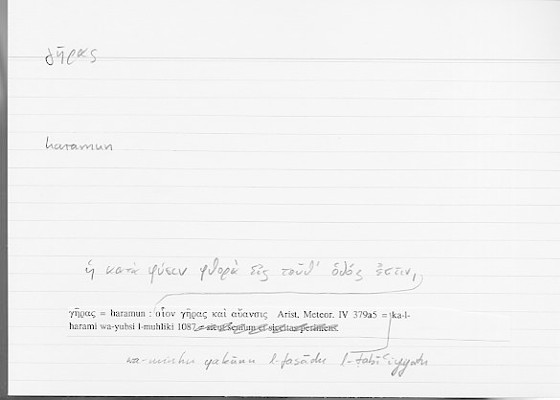 γῆρας
haramun
ἡ κατὰ φύσιν φθορὰ εἰς τοῦθ' ὁδός ἐστιν,
γῆρας = haramun : οἷον γῆρας καὶ αὔανσις Arist. Meteor. IV 379a5 = ka-l-
harami wa-yubsi l-muhliki 1087
wa-minhu yakūnu l-fasādu l-ṭabīʿiyyatu